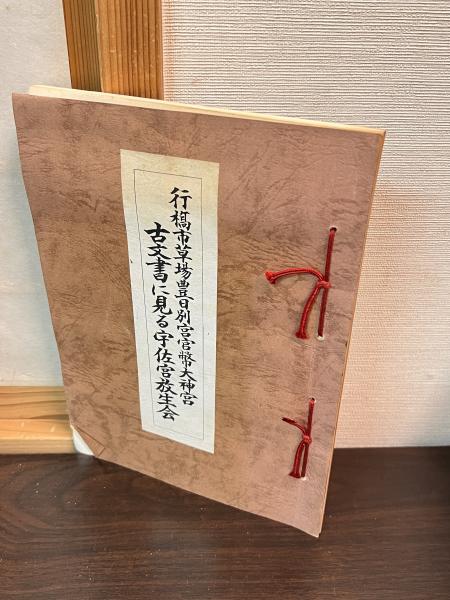 行橋市草場豊日別宮官幣大神宮
古文書に見る宇佐宮放生会